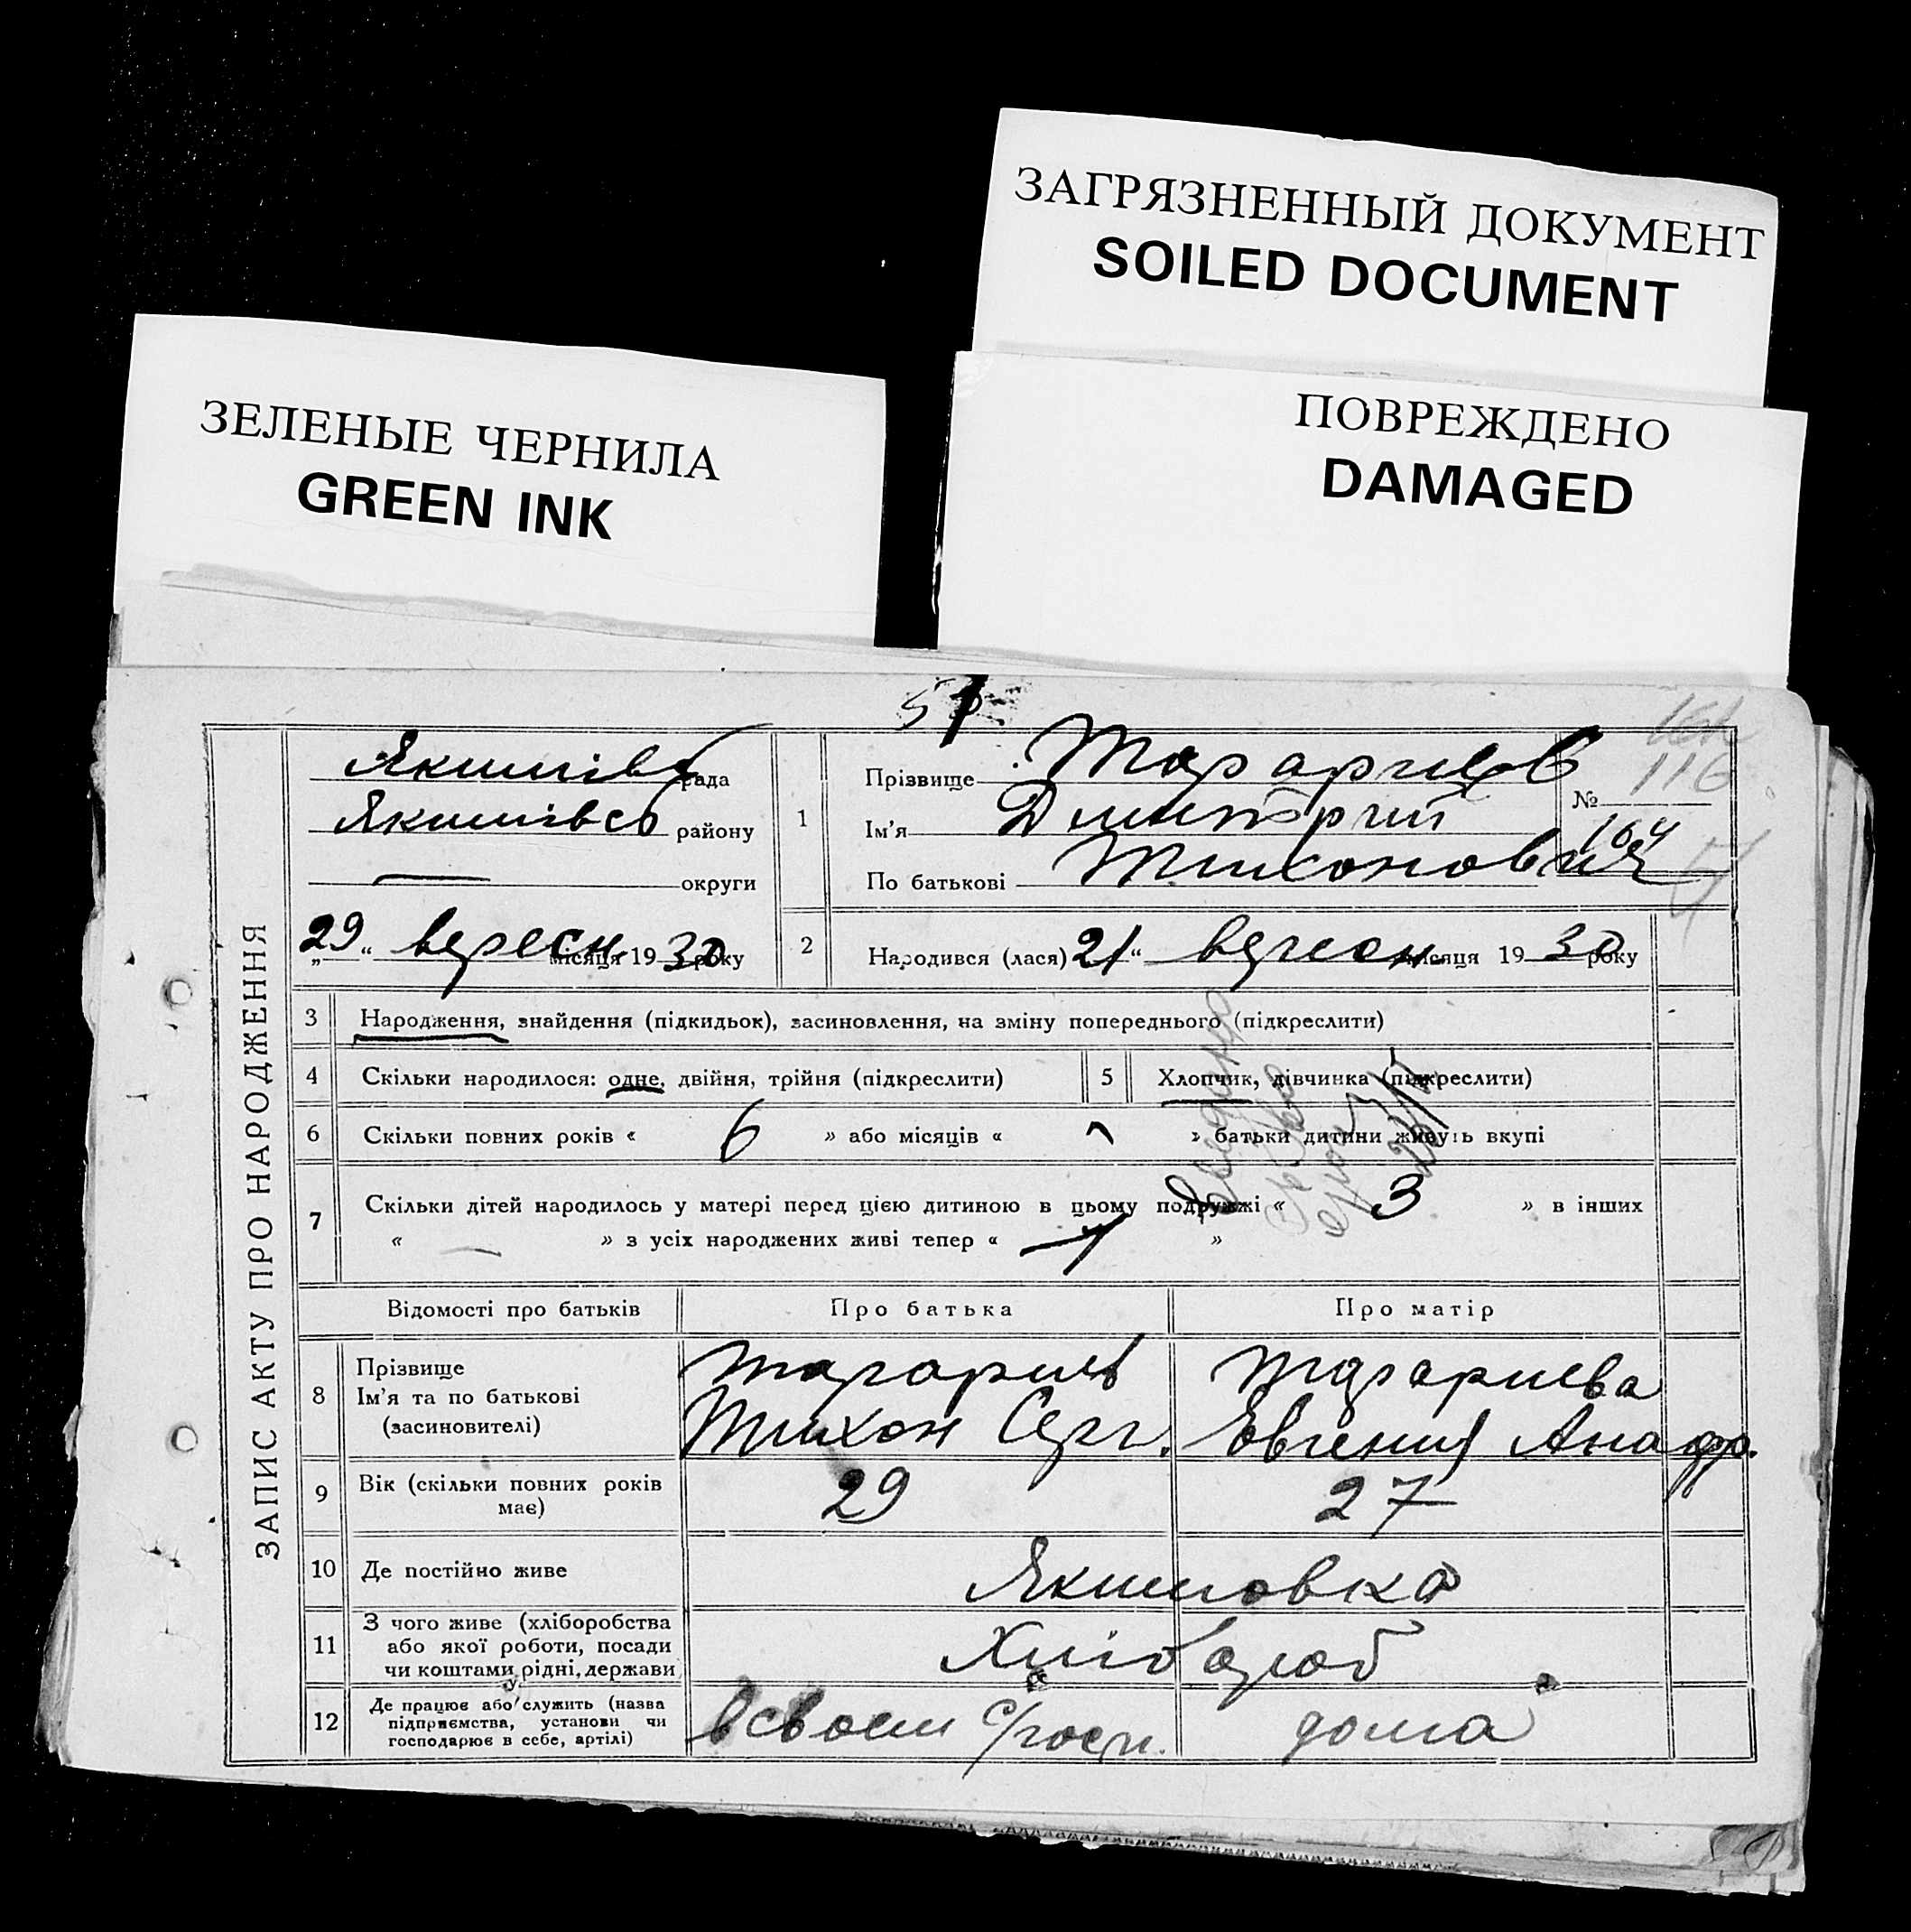 ЗАГРЯЗНЕННЫЙ ДОКУМЕНТ
SOILED DOCUMENT
ЗЕЛЕНЫЕ ЧЕРНИЛА
GREEN INK
ПОВРЕЖДЕНО
DAMAGED
ЗАПИС АКТУ ПРО НАРОДЖЕННЯ
рада
району
— округи
29 " вересн місяця 1930 року
1
Прізвище
Ім'я Дмитрий
По батькові Тихонович
№ 116
164
2 Народився (лася) 21 " вересн місяця 1930 року
3 Народження, знайдення (підкидьок), засиновлення, на зміну попереднього (підкреслити)
4 Скільки народилося: одне, двійня, трійня (підкреслити)
5 Хлопчик, дівчинка (підкреслити)
6 Скільки повних років « 6 » або місяців « » батьки дитини живуть вкупі
7 Скільки дітей народилось у матері перед цією дитиною в цьому подружжі « 3 » в інших
« — » з усіх народжених живі тепер « »
Відомості про батьків Про батька Про матір
8 Прізвище
Ім'я та по батькові
(засиновителі)
Тихон Серг. Евгения
9 Вік (скільки повних років
має)
29 27
10 Де постійно живе Якимовка
11 З чого живе (хліборобства
або якої роботи, посади
чи коштами рідні, держави
Хлібороб
12 Де працює або служить (назва
підприємства, установи чи
господарює в себе, артілі)
в своем с/госп. дома